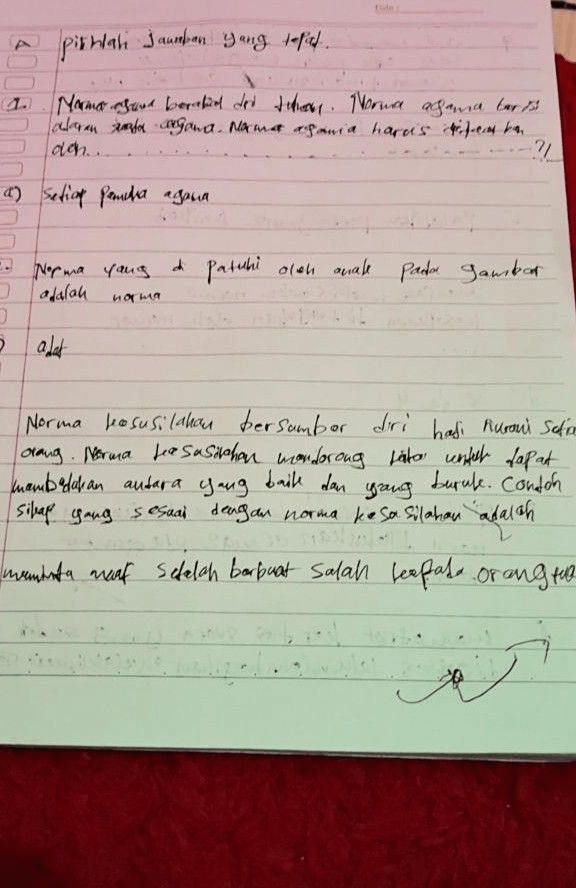 A pilihlah Jawaban yang tepat.
1. Norma agama berasal dri tuhan. Norma agama
aturan agama. Norma agama harus
oleh. . . . . . . . . . . . . . . . . . . ?
a) setiap pemeluk agama
Norma yang di Patuhi oleh anak Pada gambar
adalah norma
adat
Norma kesusilahan bersumber diri hati Nurani Setia
orang. Norma kesusilahan mendorong kita untuk dapat
membedakan antara yang baik dan yang buruk. Contoh
sikap yang sesuai dengan norma kesusilahan adalah
meminta maaf setelah berbuat salah kepada orang tua